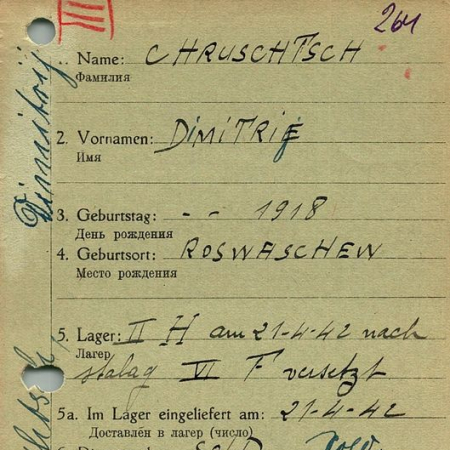 III
264
.. Name: CHRUSCHTSCH
Фамилия
2. Vornamen: DIMITRIJ
Имя
3. Geburtstag: - - 1918
День рождения
4. Geburtsort: ROSWASCHEW
Место рождения
5. Lager: II H am 21-4-42 nach
Лагер
stalag VI F versetzt
5a. Im Lager eingeliefert am: 21-4-42
Доставлен в лагер (число)
Dimitrij